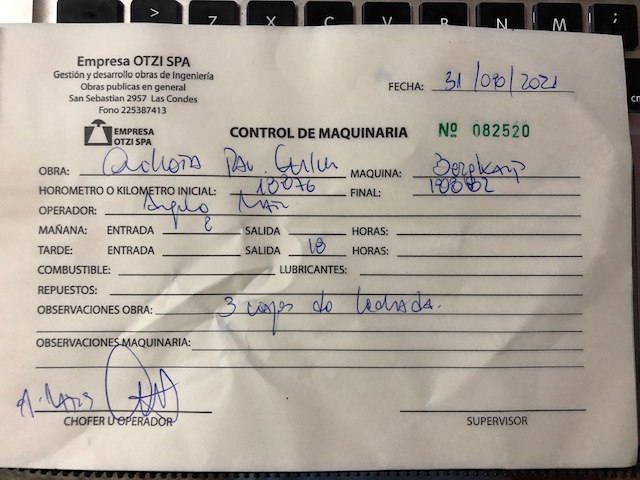 Empresa OTZI SPA
Gestión y desarrollo obras de Ingeniería
Obras publicas en general
San Sebastian 2957 Las Condes
Fono 225387413
FECHA: 31/08/2021
EMPRESA
OTZI SPA
CONTROL DE MAQUINARIA Nº 082520
OBRA: MAQUINA:
HOROMETRO O KILOMETRO INICIAL: FINAL:
OPERADOR: Angelo
MAÑANA: ENTRADA 8 SALIDA HORAS:
TARDE: ENTRADA SALIDA 18 HORAS:
COMBUSTIBLE: LUBRICANTES:
REPUESTOS:
OBSERVACIONES OBRA: 3 de lechada.
OBSERVACIONES MAQUINARIA:
CHOFER U OPERADOR
SUPERVISOR
>
Z
X
C
V
B
N
M
;